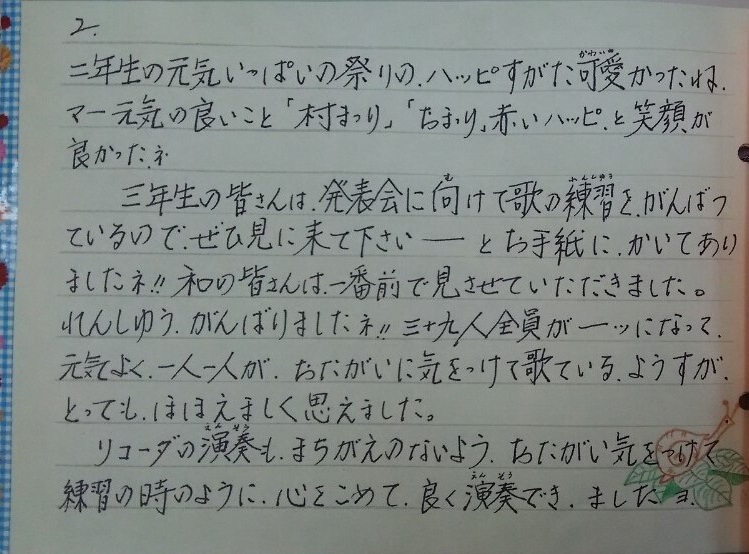 2.
二年生の元気いっぱいの祭りの、ハッピすがた可愛かったね、
マー元気の良いこと「村まつり」「おまつり」赤いハッピ、と笑顔が
良かった、ネ
三年生の皆さんは、発表会に向けて歌の練習を、がんばっ
ているので、ぜひ見に来て下さい ── とお手紙に、かいてあり
ましたネ!! 和の皆さんは、一番前で見させていただきました。
れんしゅう、がんばりましたネ!! 三十九人全員が一ッになって、
元気よく、一人一人が、おたがいに気をつけて歌ている、ようすが、
とっても、ほほえましく思えました。
リコーダの演奏も、まちがえのないよう、おたがい気をつけて
練習の時のように、心をこめて、良く演奏でき、ましたヨ、